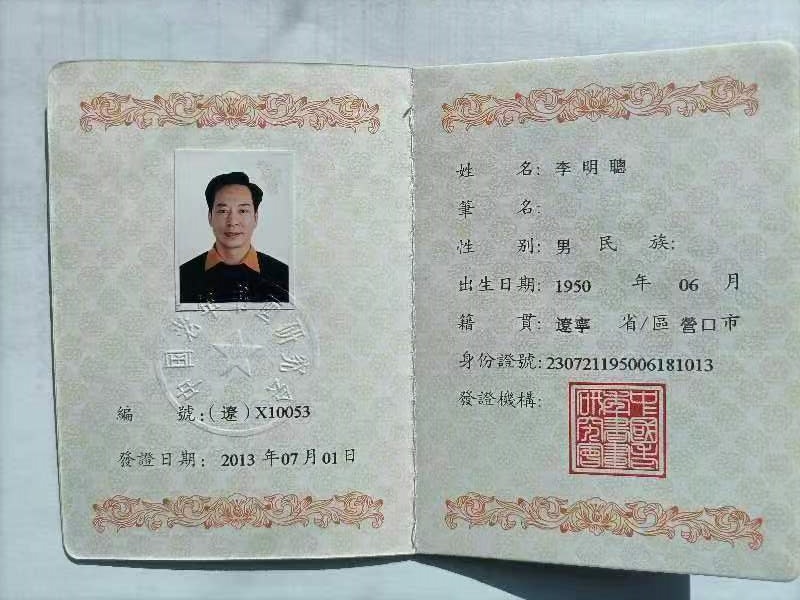 編 號:(遼)X10053
發證日期: 2013 年 07 月 01 日
姓 名: 李明聰
筆 名:
性 别: 男 民 族:
出生日期: 1950 年 06 月
籍 貫: 遼寧 省/區 營口市
身份證號: 230721195006181013
發證機構: